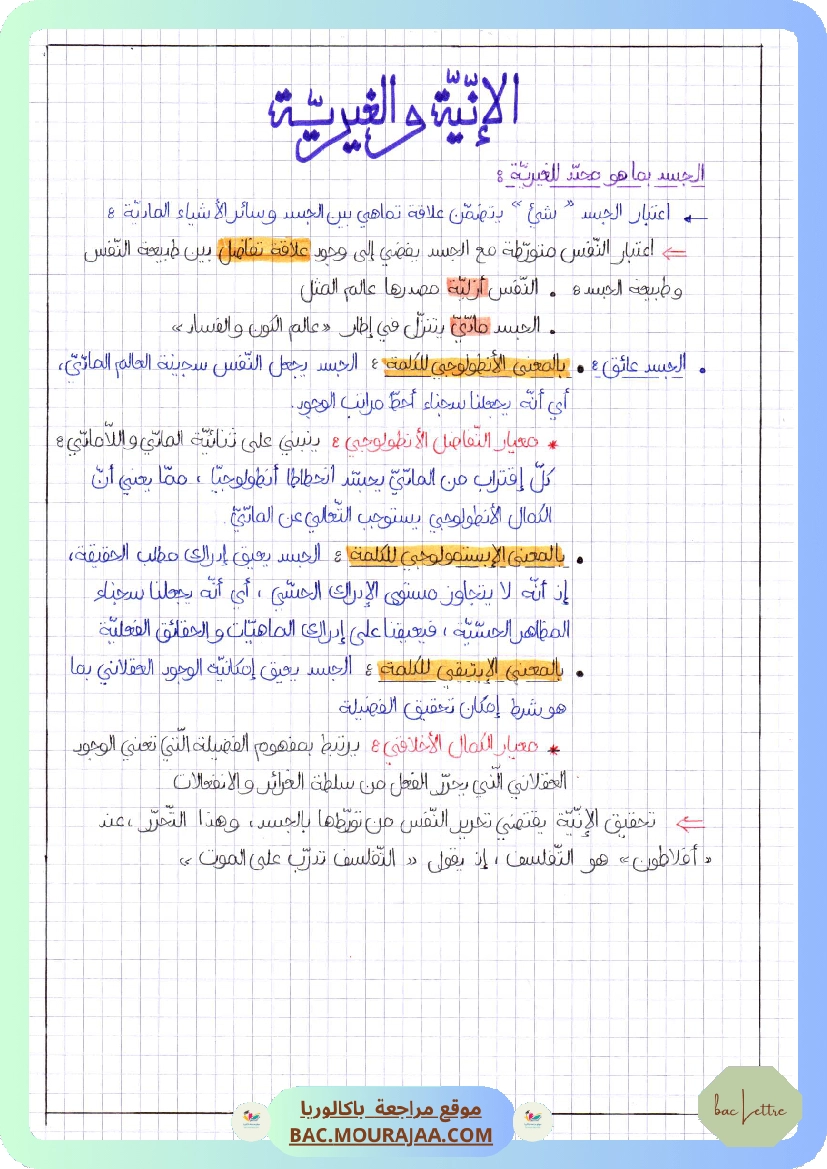 الإنّيّة والغيريّة
الجسد بما هو محدّد للغيريّة :
← اعتبار الجسد "شيئ" يتضمّن علاقة تماهي بين الجسد وسائر الأشياء الماديّة :
⇐ اعتبار النّفس متورّطة مع الجسد يفضي إلى وجود علاقة تفاضل بين طبيعة النّفس
وطبيعة الجسد : • النّفس أزليّة مصدرها عالم المثل
• الجسد مادّيّ يتنزّل في إطار «عالم الكون والفساد»
• الجسد عائق : • بالمعنى الأنطولوجي للكلمة : الجسد يجعل النّفس سجينة العالم المادّيّ،
أي أنّه يجعلنا سجناء أحطّ مراتب الوجود.
* معيار التّفاضل الأنطولوجي : ينبني على ثنائيّة المادّي واللّامادّي :
كلّ إقتراب من المادّيّ يجسّد انحطاطا أنطولوجيّا ، ممّا يعني أنّ
الكمال الأنطولوجي يستوجب التّعالي عن المادّيّ.
• بالمعنى الإبستمولوجي للكلمة : الجسد يعيق إدراك مطلب الحقيقة،
إذ أنّه لا يتجاوز مستوى الإدراك الحسّي ، أي أنّه يجعلنا سجناء
المظاهر الحسّيّة ، فيعيقنا على إدراك الماهيّات والحقائق الفعليّة
• بالمعنى الإيتيقي للكلمة : الجسد يعيق إمكانيّة الوجود العقلاني بما
هو شرط إمكان تحقيق الفضيلة
* معيار الكمال الأخلاقي : يرتبط بمفهوم الفضيلة الّتي تعني الوجود
العقلاني الّذي يحرّر الفعل من سلطة الغرائز والانفعالات
⇐ تحقيق الإنّيّة يقتضي تحرير النّفس من تورّطها بالجسد، وهذا التّحرّر ،عند
«أفلاطون» هو التّفلسف ، إذ يقول « التّفلسف تدرّب على الموت »
موقع مراجعة باكالوريا
BAC.MOURAJAA.COM
bac Lettre